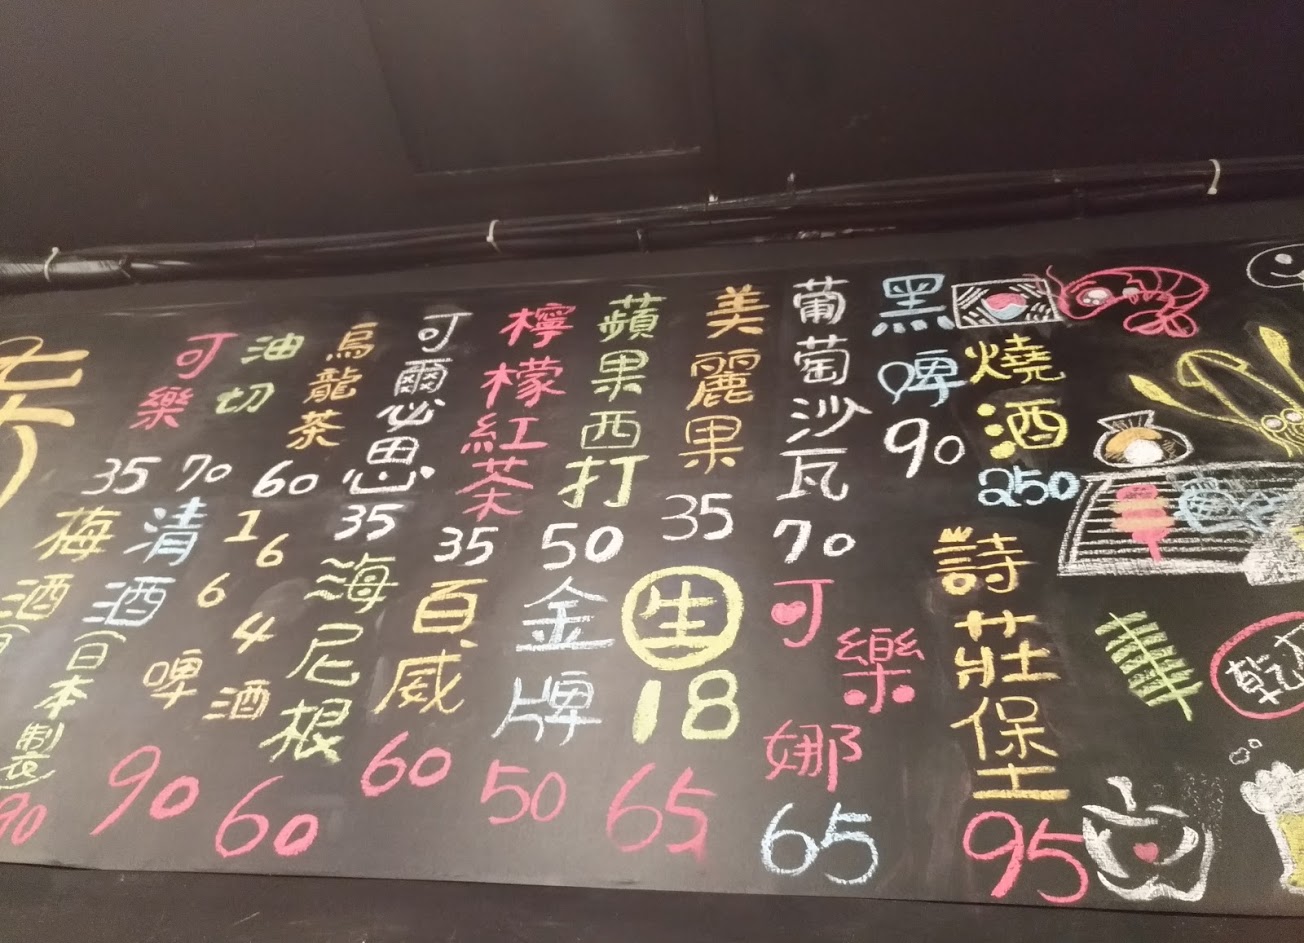 燒酒
250
黑啤
90
葡萄沙瓦
70
美麗果
35
蘋果西打
50
檸檬紅茶
35
可爾必思
35
烏龍茶
60
油切
70
可樂
35
乾
詩莊堡
95
可樂娜
65
生
18
65
金牌
50
百威
60
海尼根
60
1664
啤酒
90
清酒(日本製)
90
梅酒(